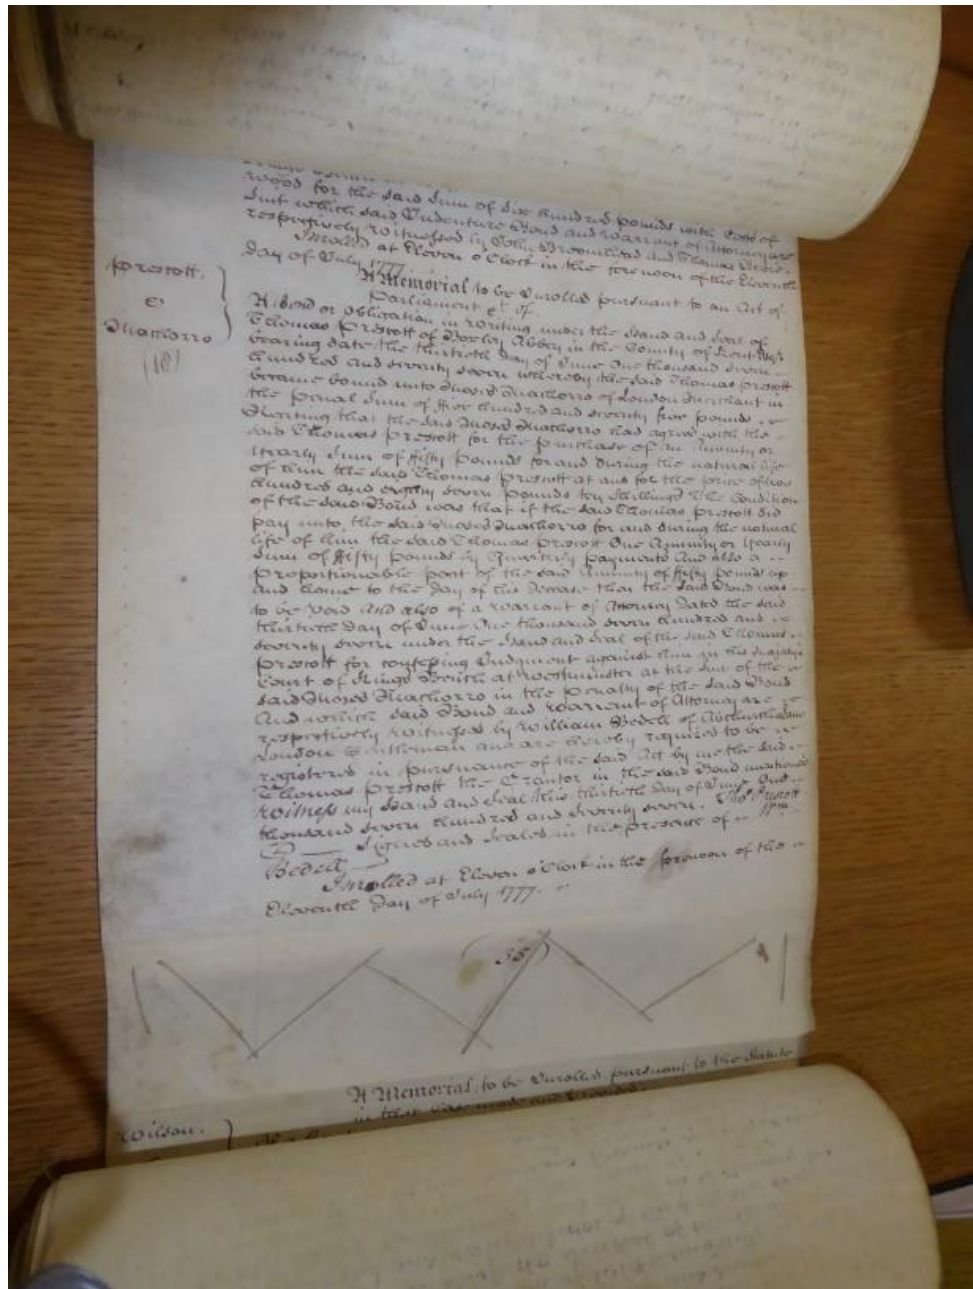 wood for the said Sum of Six hundred pounds with Costs of
Suit which said Indenture Bond and Warrant of Attorney are
respectively witnessed by John Broomhead and Thomas
Inrolled at Eleven o'Clock in the forenoon of the Eleventh
day of July 1777
Prescott.
&
(18)
A Memorial to be Inrolled pursuant to an Act of
Parliament &c. Of
A Bond or Obligation in writing under the Hand and Seal of
Thomas Prescott of Boxley Abbey in the County of Kent Esqr
bearing date the thirtieth day of June One thousand seven
hundred and seventy seven whereby the said Thomas Prescott
became bound unto Moses of London Merchant in
the penal Sum of five hundred and seventy five pounds
Reciting that the said Moses had agreed with the
said Thomas Prescott for the purchase of an Annuity or
Yearly Sum of fifty pounds for and during the natural life
of him the said Thomas Prescott at and for the price of two
hundred and eighty seven pounds ten shillings The Condition
of the said Bond was that if the said Thomas Prescott did
pay unto the said Moses for and during the natural
life of him the said Thomas Prescott One Annuity or Yearly
Sum of fifty pounds by Quarterly payments And also a
proportionable part of the said Annuity of fifty pounds up
and home to the day of his decease then the said Bond was
to be void And also of a Warrant of Attorney dated the said
thirtieth day of June One thousand seven hundred and
seventy seven under the Hand and Seal of the said Thomas
Prescott for confessing Judgment against him in his Majesty's
Court of Kings Bench at Westminster at the Suit of the
said Moses in the penalty of the said Bond
And which said Bond and Warrant of Attorney are
respectively witnessed by William Bedell of
London Gentleman and are hereby required to be
registered in pursuance of the said Act by me the said
Thomas Prescott the Grantor in the said Bond mentioned
Witness my Hand and Seal this thirtieth day of June One
thousand seven hundred and seventy seven. Thos. Prescott
Signed and Sealed in the presence of Wm.
Bedell
Inrolled at Eleven o'Clock in the forenoon of the
Eleventh day of July 1777.
35
A Memorial to be Inrolled pursuant to the Statute
in that Case made and provided
Wilson.